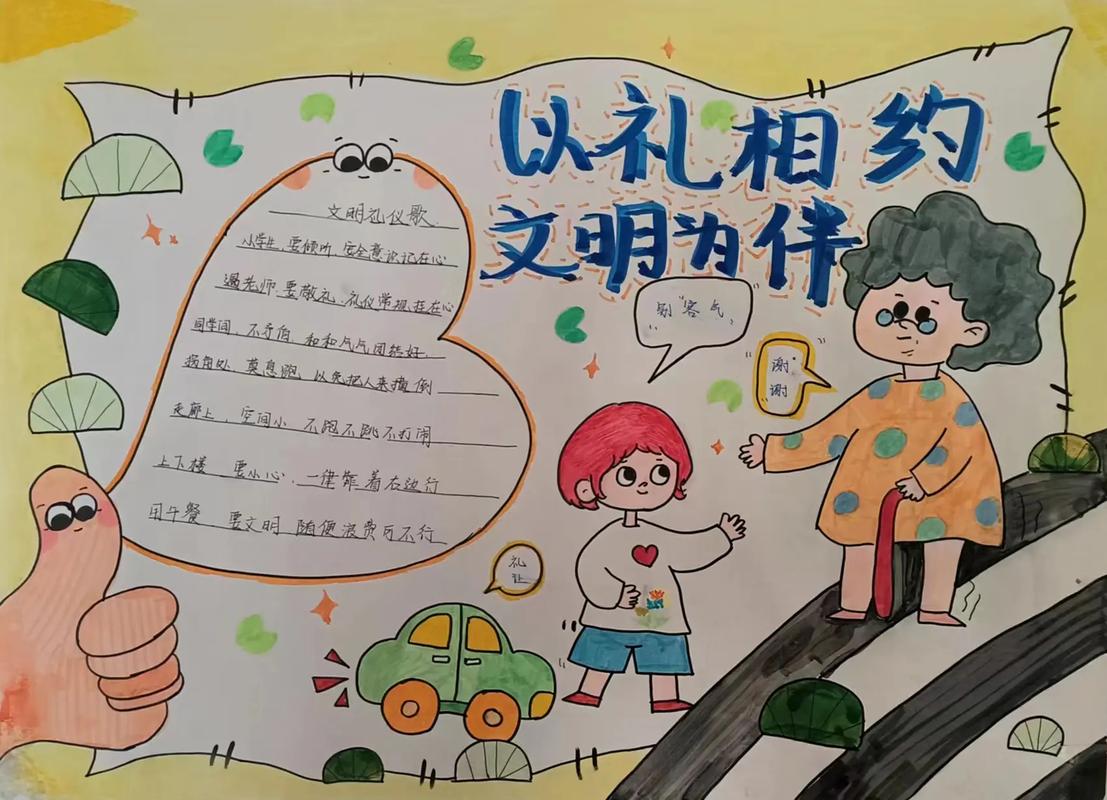 以礼相约
文明为伴
文明礼仪歌
小学生、要倾听、安全意识记在心
遇老师、要敬礼、礼仪常规挂在心
同学间、不矛盾、和和气气团结好.
拐角处、莫急跑、以免把人来撞倒
走廊上、空间小、不跑不跳不打闹
上下楼、要小心、一律靠着右边行
用午餐、要文明、随便浪费可不行
别客气
谢谢
礼让